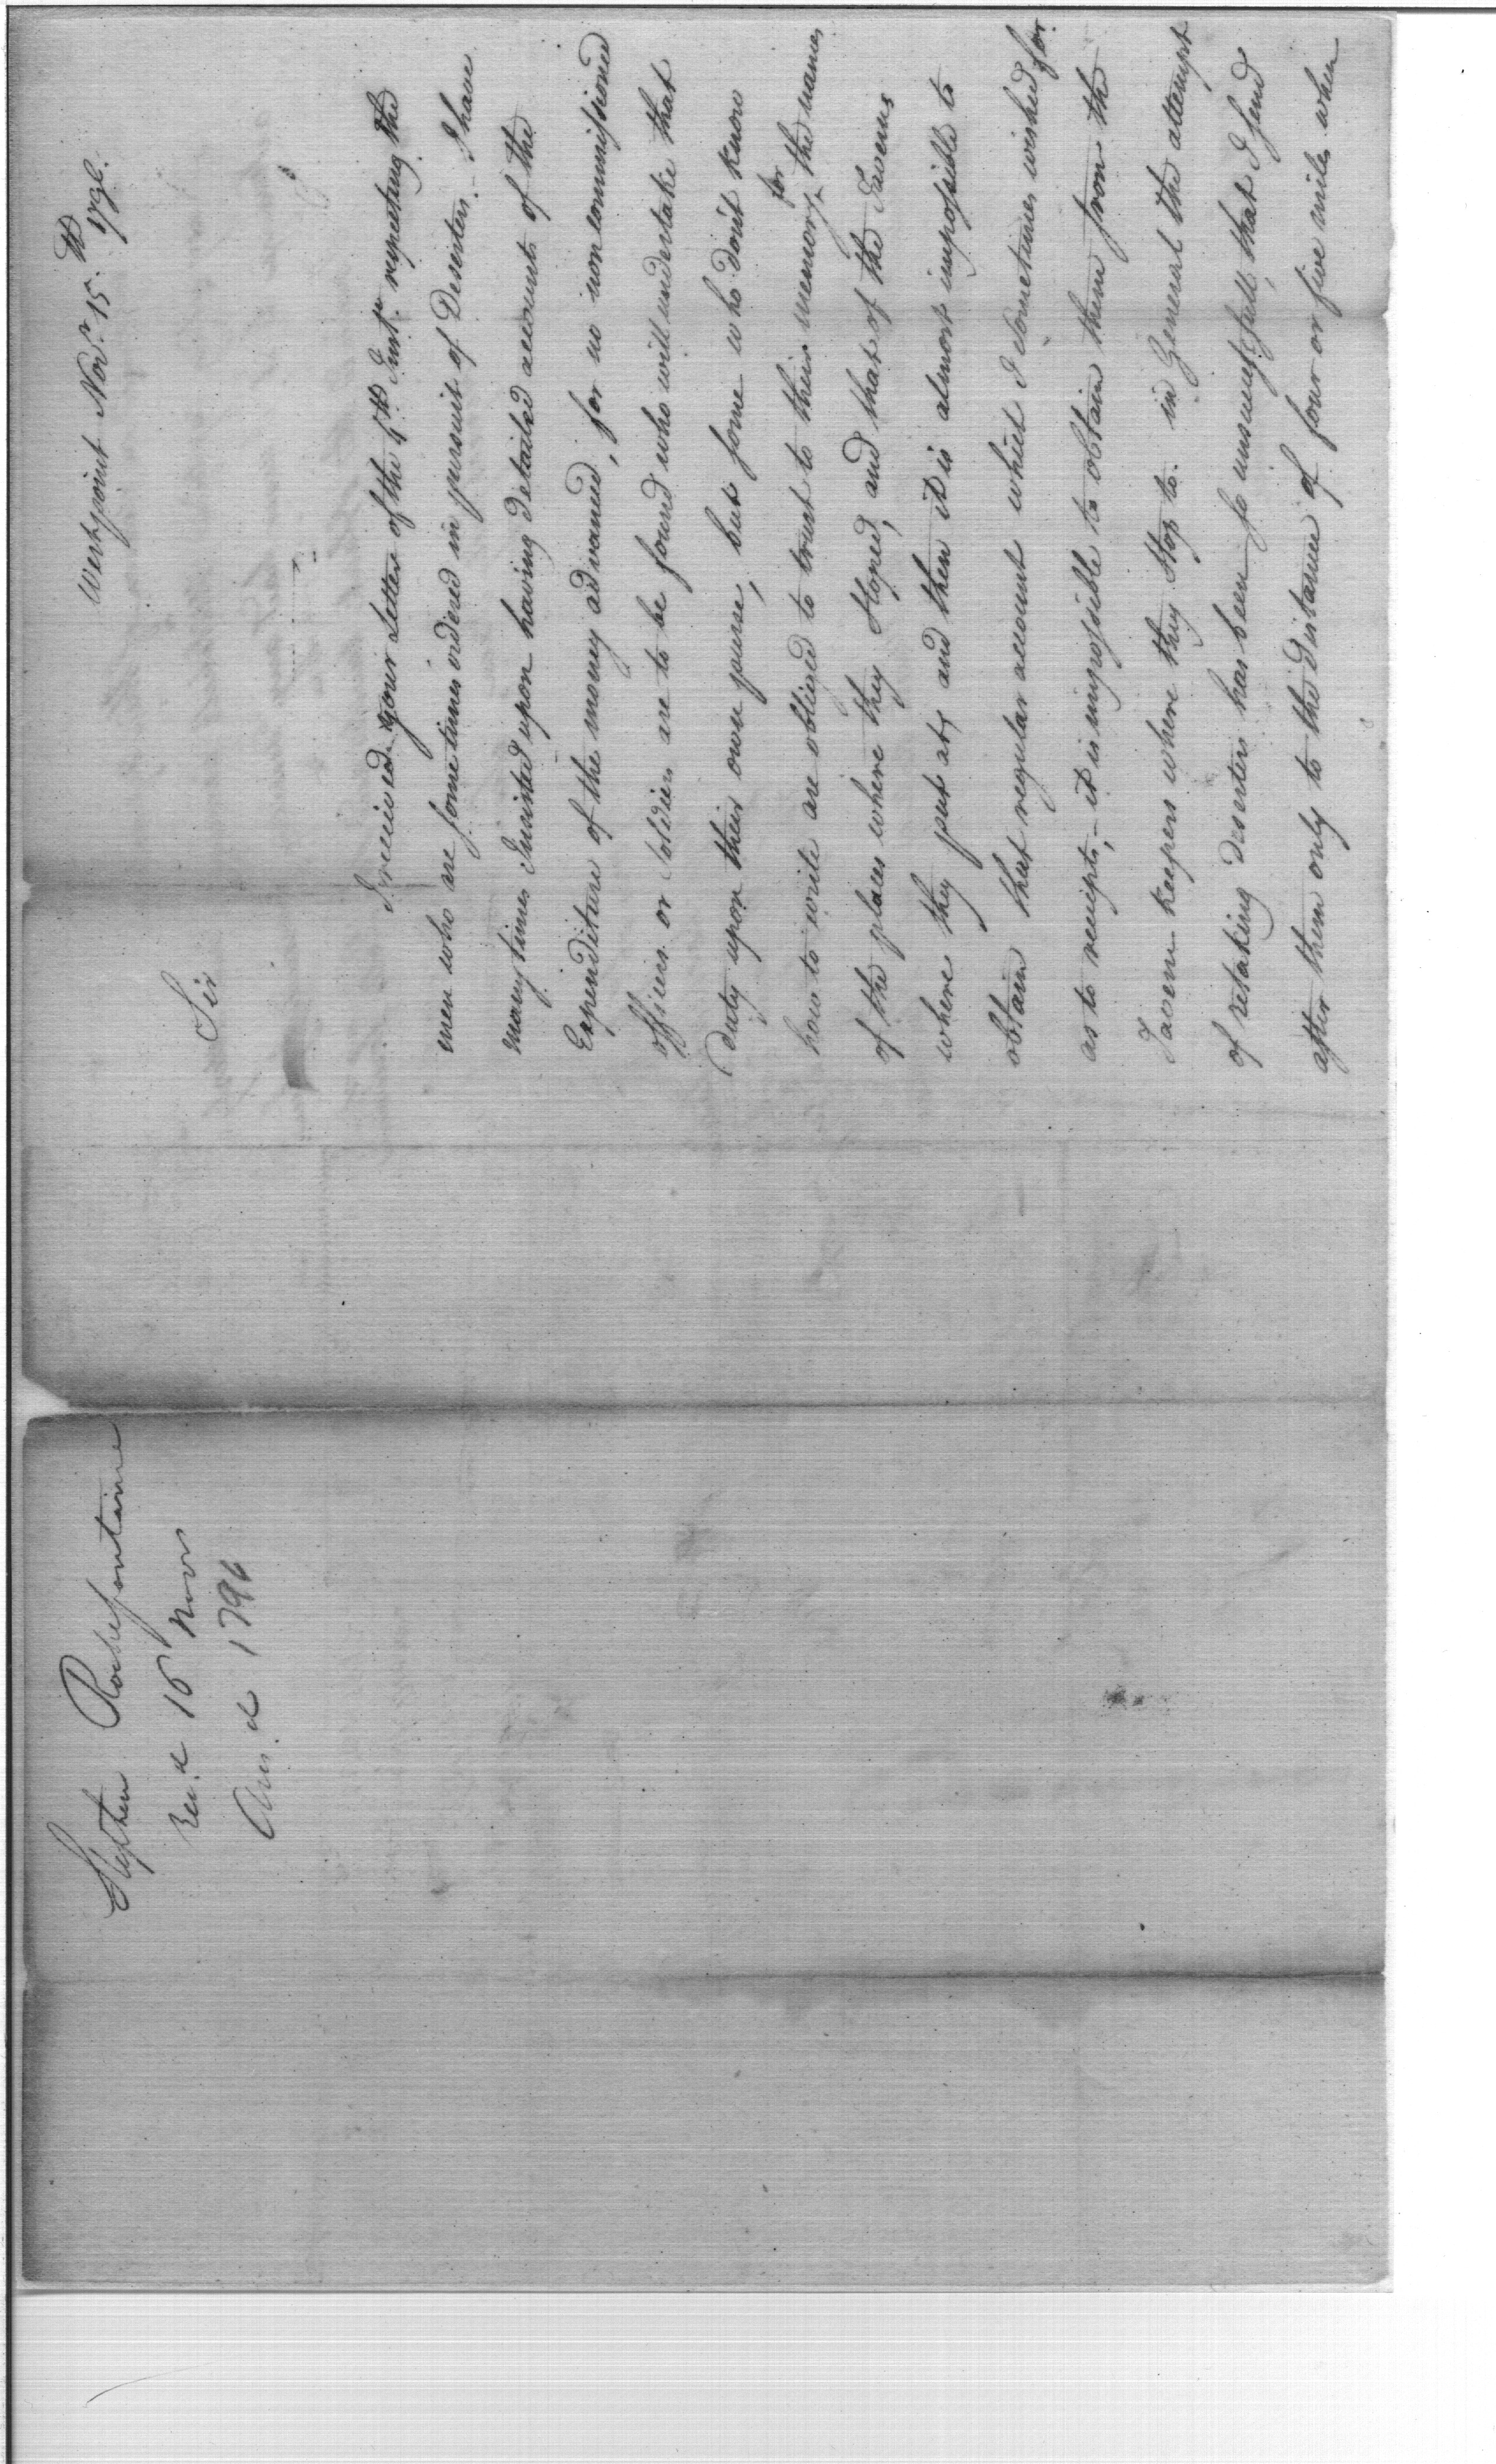 Westpoint Novr. 15th 1796.
Sir
I received your Letter of the 9th Instt. respecting the
men who are sometimes ordered in pursuit of Deserters. I have
many times Insisted upon having detailed accounts of the
Expenditure of the money advanced, for no non commissioned
officers or Soldiers are to be found who will undertake that
duty upon their own purse, but some who don't know
how to write are obliged to trust to their memory for the names
of the places where they Stoped, and that of the Taverns
where they put at, and then it is almost impossible to
obtain that regular account which I sometimes wished for.
as to receipts, it is impossible to obtain them from the
Tavern keepers where they Stop to. in General the attempt
of retaking deserters has been so unsuccessfull, that I send
after them only to the distance of four or five miles when
Stephen Rochefontaine
Recd 16 Novr
Ansd 1796